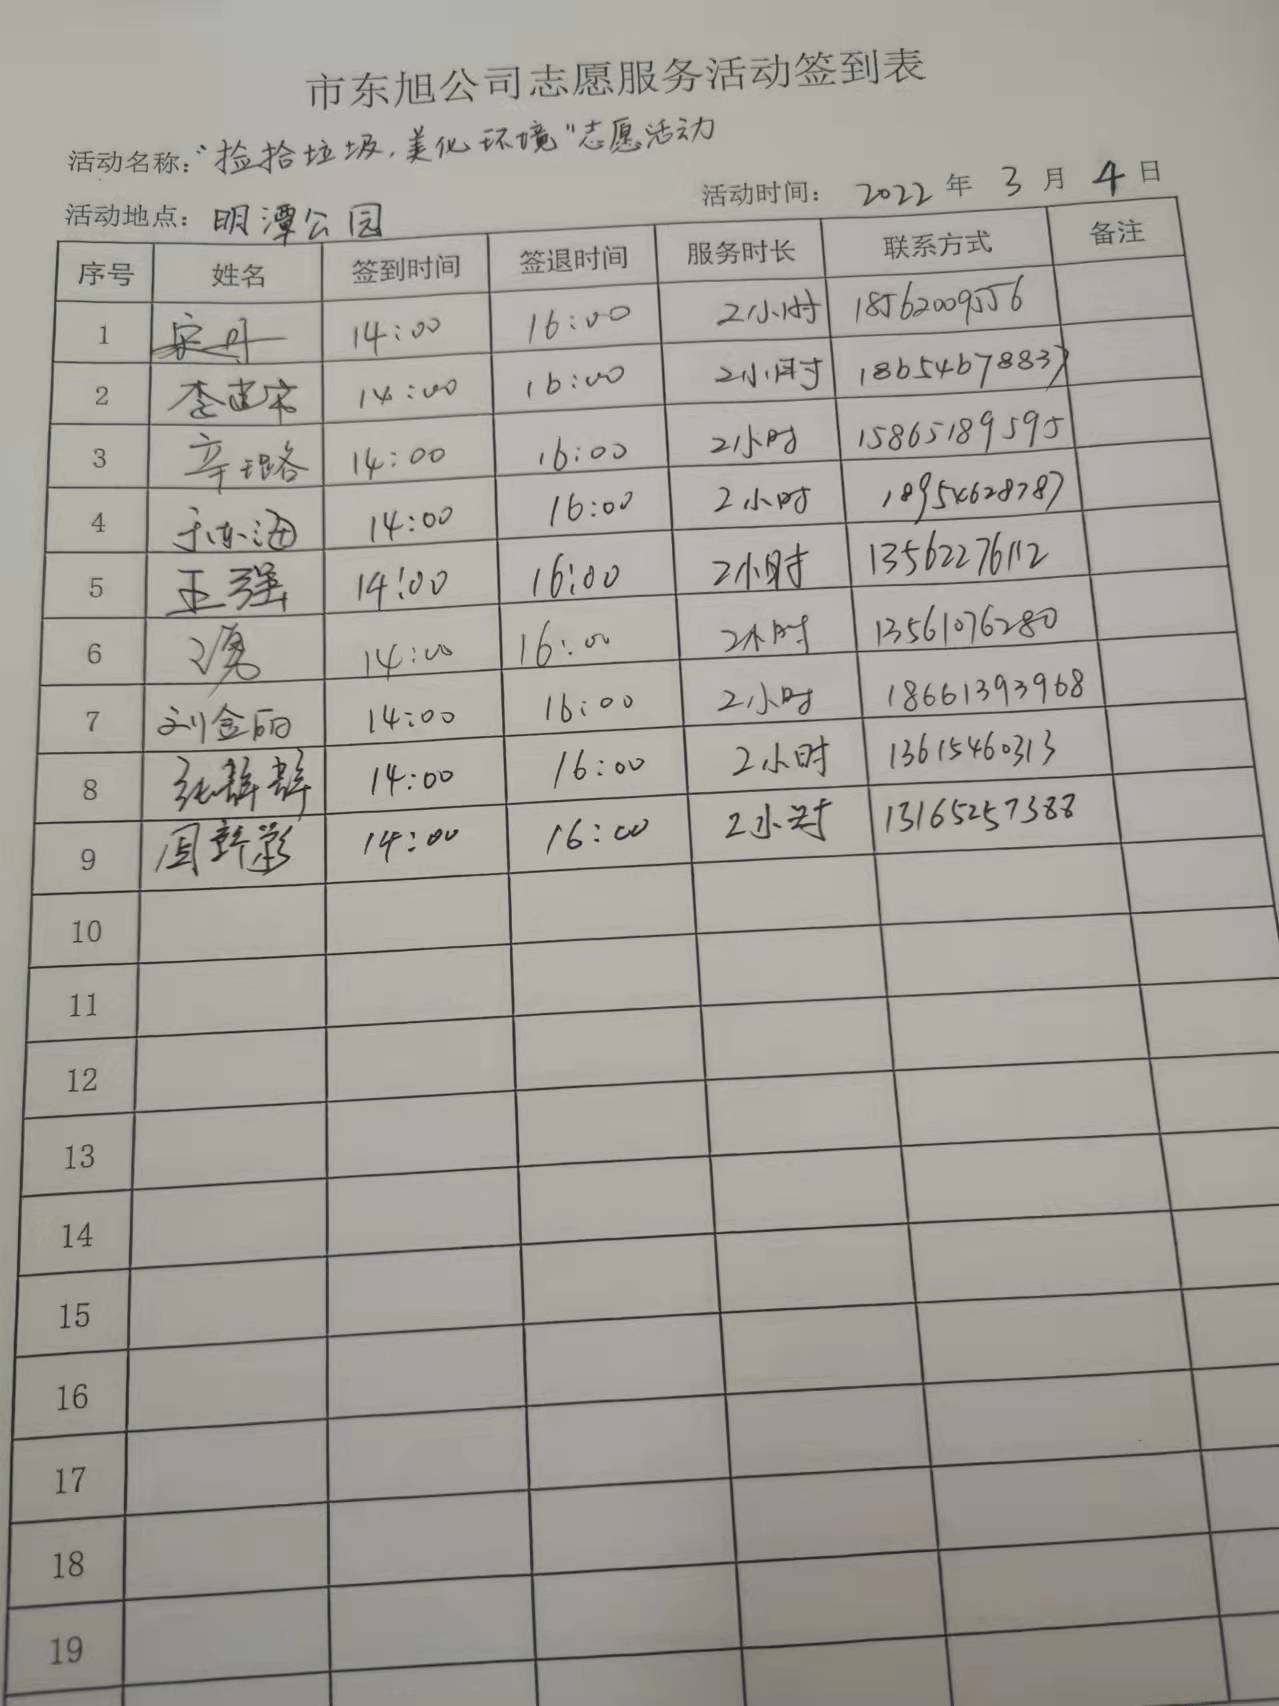 市东旭公司志愿服务活动签到表
活动名称：“捡拾垃圾，美化环境”志愿活动
活动地点：明潭公园 活动时间： 2022 年 3 月 4 日
序号 姓名 签到时间 签退时间 服务时长 联系方式 备注
1 14:00 16:00 2小时 18562009556
2 李建宗 14:00 16:00 2小时 18654678837
3 辛璐 14:00 16:00 2小时 15865189595
4 于东海 14:00 16:00 2小时 18954628787
5 王强 14:00 16:00 2小时 13562276112
6 14:00 16:00 2小时 13561076280
7 刘金丽 14:00 16:00 2小时 18661393968
8 张群群 14:00 16:00 2小时 13615460313
9 周 14:00 16:00 2小时 13165257388
10
11
12
13
14
15
16
17
18
19